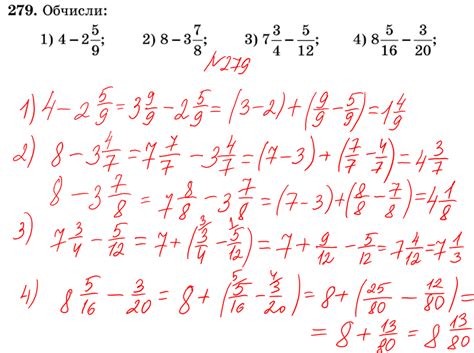 279. Обчисли:
1) 4 − 2 5/9; 2) 8 − 3 7/8; 3) 7 3/4 − 5/12; 4) 8 5/16 − 3/20;
№279
1) 4 − 2 5/9 = 3 9/9 − 2 5/9 = (3−2) + (9/9 − 5/9) = 1 4/9
2) 8 − 3 4/7 = 7 7/7 − 3 4/7 = (7−3) + (7/7 − 4/7) = 4 3/7
8 − 3 7/8 = 7 8/8 − 3 7/8 = (7−3) + (8/8 − 7/8) = 4 1/8
3) 7 3/4 − 5/12 = 7 + (3/4 − 5/12) = 7 + 9/12 − 5/12 = 7 4/12 = 7 1/3
4) 8 5/16 − 3/20 = 8 + (5/16 − 3/20) = 8 + (25/80 − 12/80) =
= 8 + 13/80 = 8 13/80